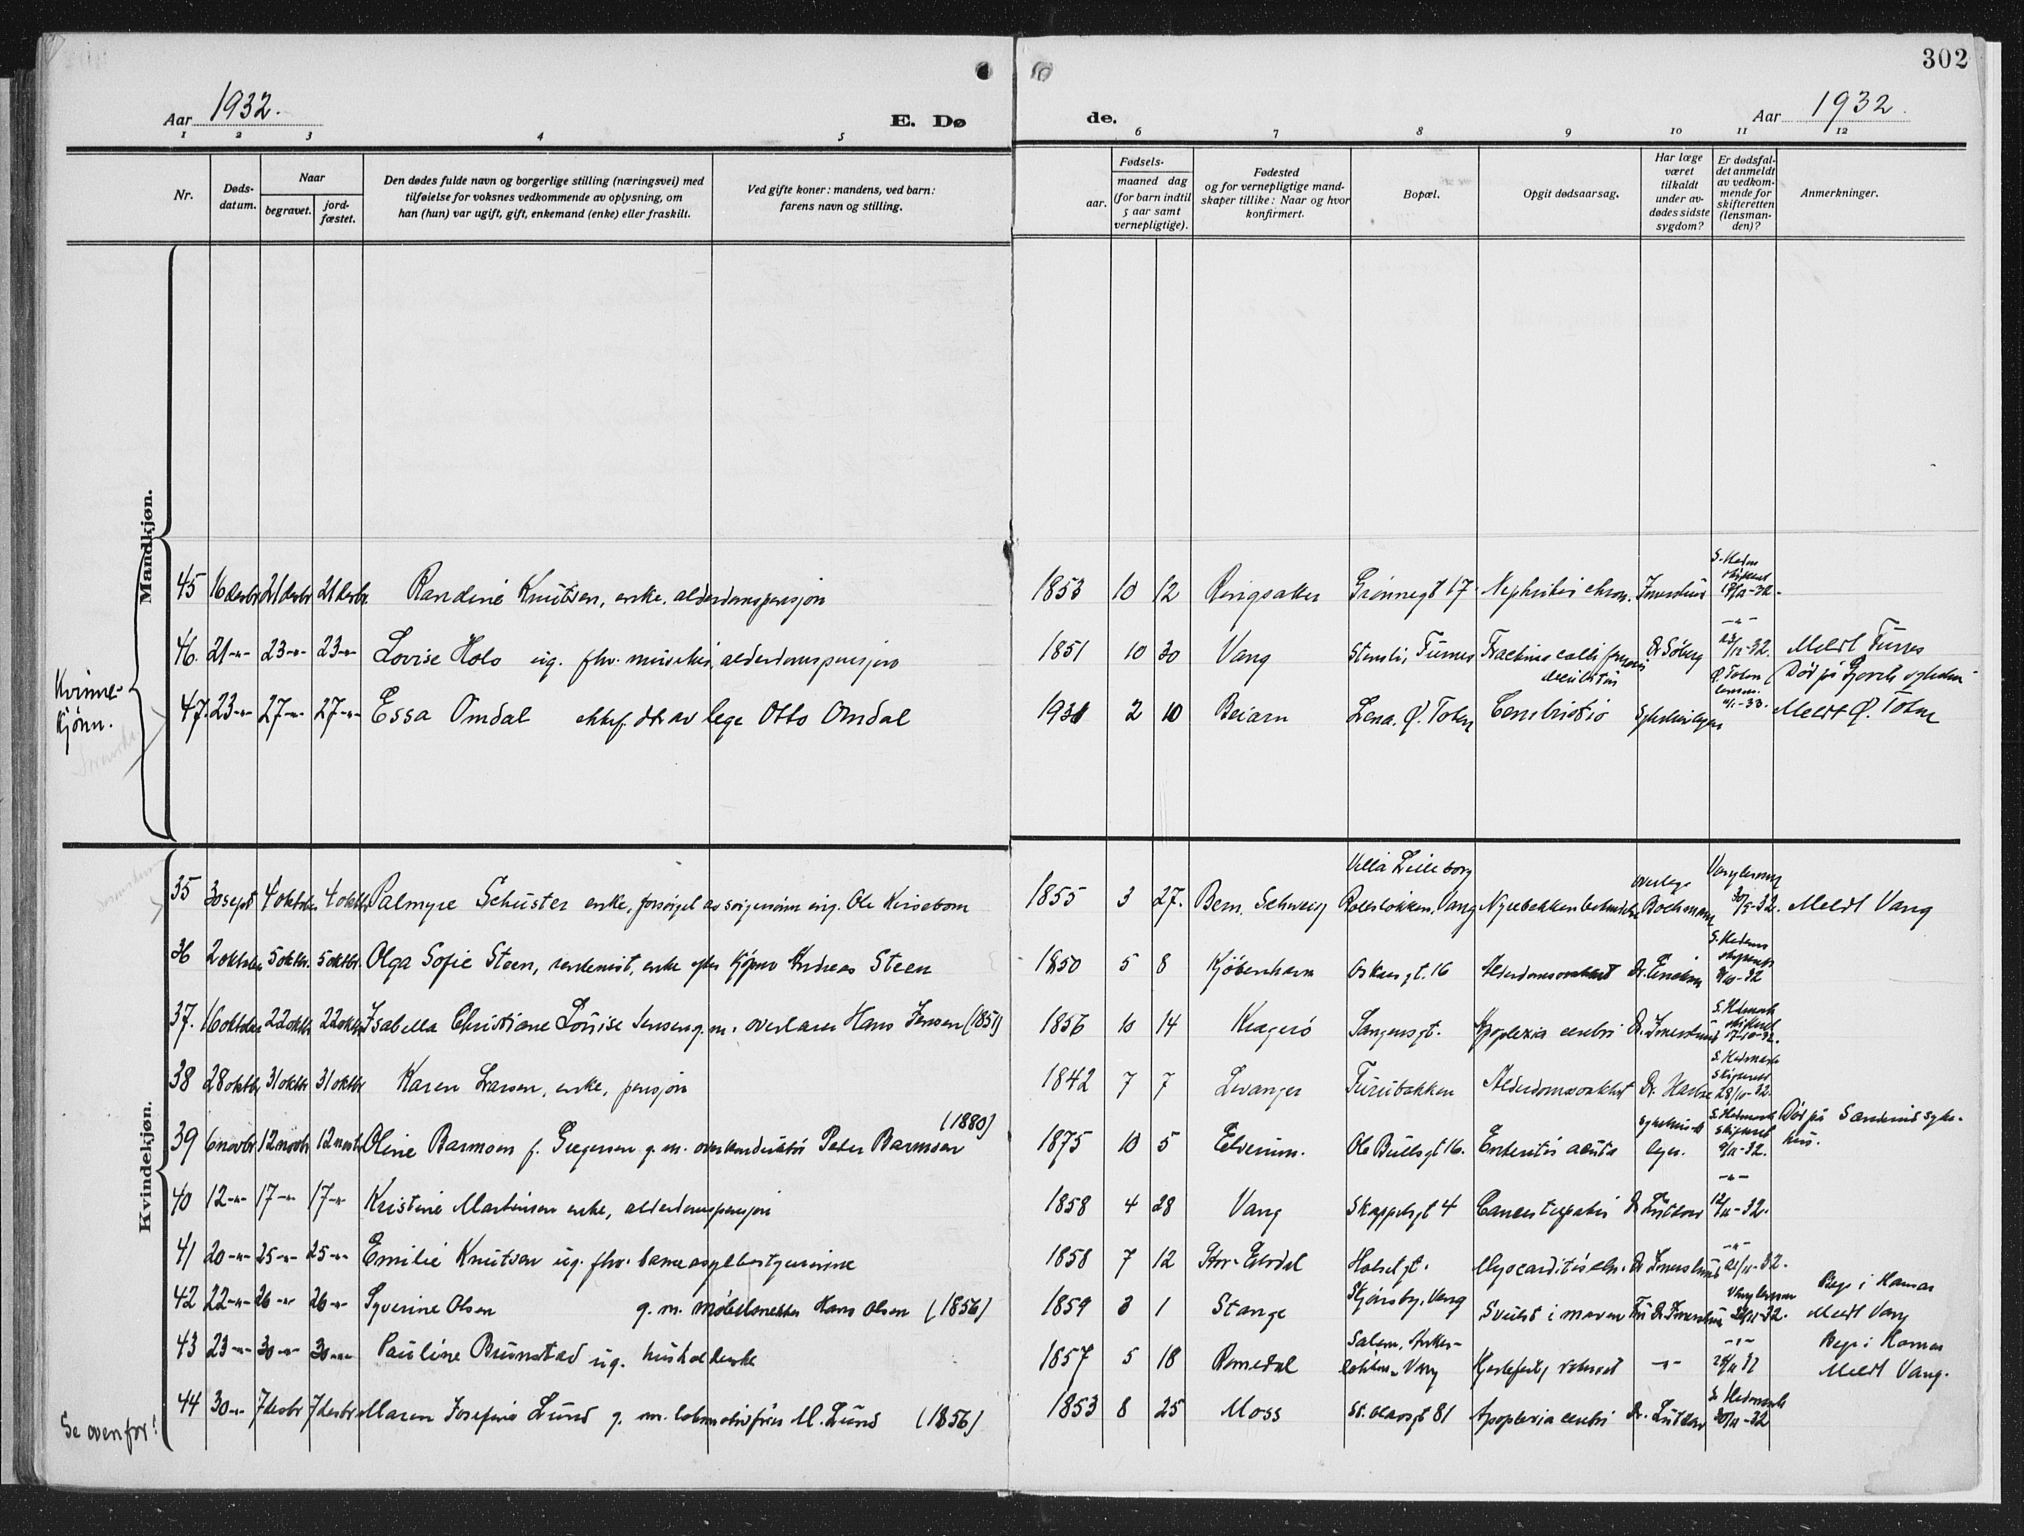 302
Aar 1932.
E. Dø
de.
Aar 1932.
1 2 3 4 5 6 7 8 9 10 11 12
Nr.
Døds-
datum.
Naar
begravet.
jord-
fæstet.
Den dødes fulde navn og borgerlige stilling (næringsvei) med
tilføielse for voksnes vedkommende av oplysning, om
han (hun) var ugift, gift, enkemand (enke) eller fraskilt.
Ved gifte koner: mandens, ved barn:
farens navn og stilling.
Fødsels-
aar.
maaned dag
(for barn indtil
5 aar samt
vernepligtige).
Fødested
og for vernepligtige mand-
skaper tillike: Naar og hvor
konfirmert.
Bopæl.
Opgit dødsaarsag.
Har læge
været
tilkaldt
under av-
dødes sidste
sygdom?
Er dødsfal-
det anmeldt
av vedkom-
mende for
skifteretten
(lensman-
den)?
Anmerkninger.
Mandkjøn.
Kvinne-
kjønn.
45 16 desbr 21 desbr 21 desbr Randine Knutsen, enke, alderdomspensjon 1853 10 12 Ringsaker Grønnegt 17 Nephritis chron.
46. 21-"- 23-"- 23-"- Lovise Holo ug. fhv. alderdomspensjon 1851 10 30 Vang Stensli, Furnes Dr. Søberg 23/12-32. Meldt Furnes
47. 23-"- 27-"- 27-"- Essa Omdal ektef. dtr av lege Otto Omdal 1931 2 10 Beiarn Lena, Ø. Toten Combustio Meldt Ø. Toten
Kvindekjøn.
35 30 sept 4 oktbr 4 oktbr Palmyre Schuster enke, forsørget av svigersønn ing. Ole Kirsebom 1855 3 27. Bern, Schweiz Villa Lilleborg Vang overlege Meldt Vang
36 2 oktbr 5 oktbr. 5 oktbr. Olga Sofie Steen, rentenist, enke efter kjøpm Andreas Steen 1850 5 8 Kjøbenhavn Oskarsgt. 16 Alderdomssvakhet
37. 16 oktbr 22 oktbr 22 oktbr Isabella Christiane Louise Jensen g. m. overlærer Hans Jensen (1851) 1856 10 14 Kragerø Sangensgt. Apoplexia cerebri 17-10-32.
38 28 oktbr 31 oktbr 31 oktbr Karen Larsen, enke, pensjon 1842 7 7 Levanger Furubakken Alderdomssvakhet S. Hedmark skifterett 28/10-32.
39 6 novbr 12 novbr 12 novbr Oline Barmoen f. Gregersen g. m. overkonduktør Peter Barmoen (1880) 1875 10 5 Elverum. Ole Bullsgt 16. Enteritis acuta S. Hedmark skifterett Død på Sanderud syke-
hus.
40 12-"- 17-"- 17-"- Kristine Martinsen enke, alderdomspensjon 1858 4 28 Vang Skappelsgt 4 Dr. Lützow 12/11-32.
41 20-"- 25-"- 25-"- Emilie Knutsen ug. fhv. barneasylbestyrerinne 1858 7 12 Stor-Elvdal Holsetgt. Myocarditis chr. 21/11-32.
42 22-"- 26-"- 26-"- Syverine Olsen g. m. møbelsnekker Hans Olsen (1856) 1859 3 1 Stange Skjønsby, Vang Svulst i maven Begr i Hamar
Meldt Vang
43 23-"- 30-"- 30-"- Pauline Brunstad ug. husholderske 1857 5 18 Romedal Hjertefeil Begr i Hamar
Meldt Vang.
44 30-"- 7 desbr 7 desbr Maren Josefine Lund g. m. lokomotivfører M. Lund (1856) 1853 8 25 Moss St. Olavsgt 81 Apoplexia cerebri Dr. Lützow S. Hedmark 30/11-32
Se ovenfor!